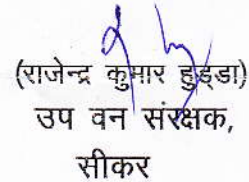 (राजेन्द्र कुमार हुड्डा)
उप वन संरक्षक,
सीकर